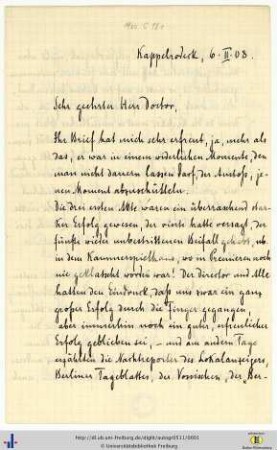 Kappelrodeck, 6.II.08.
Sehr geehrter Herr Doctor,
Ihr Brief hat mich sehr erfreut, ja, mehr als
das, er war in einem widerlichen Momente, den
man nicht dauern lassen darf, der Anstoß, je-
nen Moment abzuschütteln.
Die drei ersten Akte waren ein überraschend star-
ker Erfolg gewesen, der vierte hatte versagt, der
fünfte wieder unbestrittenen Beifall gehabt, und
in dem Kammerspielhaus, wo in Premieren noch
nie geklatscht worden war! Der Director und Alle
hatten den Eindruck, daß uns zwar ein ganz
großer Erfolg durch die Finger gegangen,
aber immerhin noch ein guter, erfreulicher
Erfolg geblieben sei, – und am andern Tage
erzählten die Nachtreporter des Lokalanzeigers,
Berliner Tageblattes, der Vossischen, der „Ber-
http://dl.ub.uni-freiburg.de/diglit/autogr0111/0001
© Universitätsbibliothek Freiburg